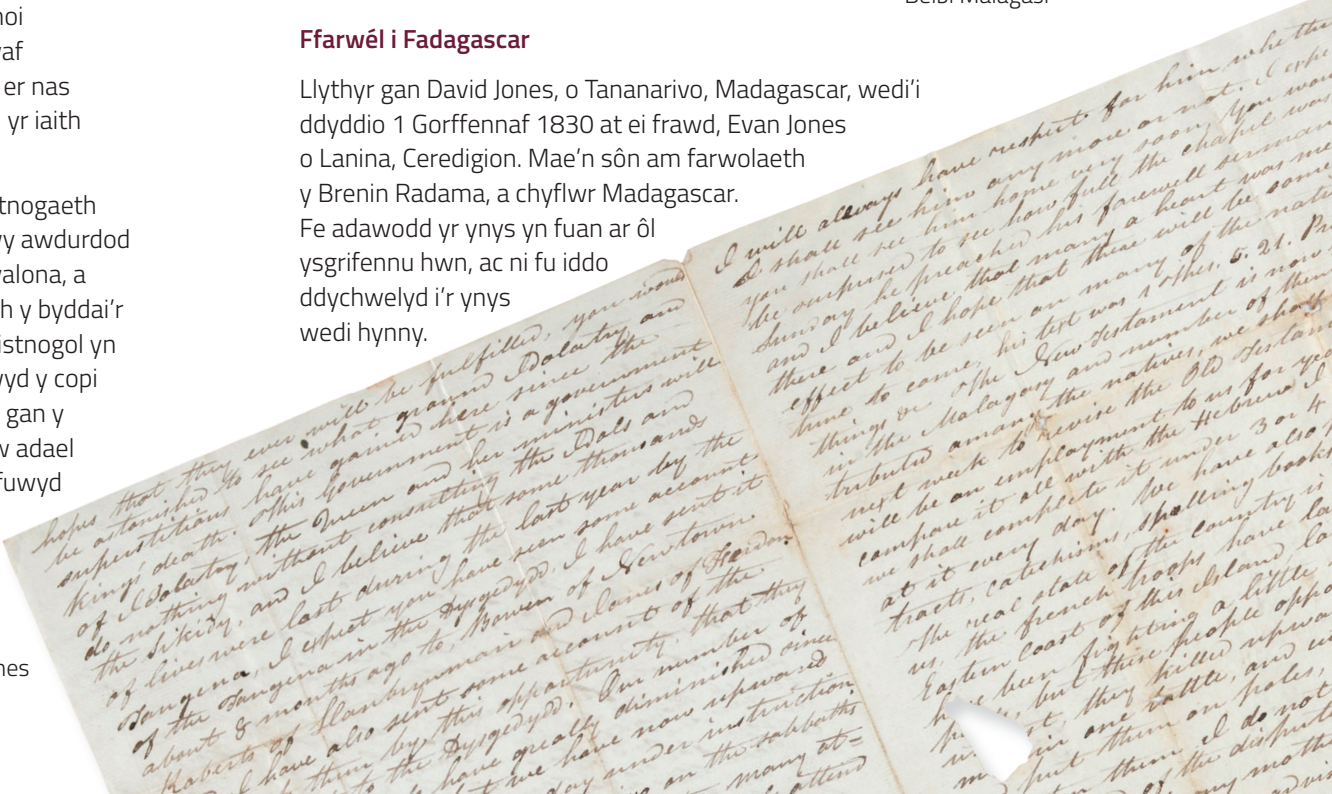 noi
af
er nas
yr iaith
tnogaeth
wy awdurdod
valona, a
h y byddai'r
istnogol yn
wyd y copi
gan y
w adael
fuwyd
nes
Ffarwél i Fadagascar
Llythyr gan David Jones, o Tananarivo, Madagascar, wedi'i
ddyddio 1 Gorffennaf 1830 at ei frawd, Evan Jones
o Lanina, Ceredigion. Mae'n sôn am farwolaeth
y Brenin Radama, a chyflwr Madagascar.
Fe adawodd yr ynys yn fuan ar ôl
ysgrifennu hwn, ac ni fu iddo
ddychwelyd i'r ynys
wedi hynny.
Beibl Malagasi
hopes that they ever will be fulfilled, you would
be astonished to see what ground Idolatry and
superstitions have gained here since the
kings, death. This government is a government
of Idolatry, the Queen and her ministers will
do nothing without consulting the Idols and
the Sikidy, and I believe that some thousands
of lives were lost during the last year by the
Tangena, I expect you have seen some account
of the Tangena in the Dysgedydd. I have sent it
about 8 months ago to, Bowen of Newtown.
Roberts of Llanbrynmair and
I have also sent some account of the
them by this opportunity, that they
to the Dysgedydd. Our number of
have greatly diminished since
but we have now upward
day under instruction
on the sabbaths
many at=
attend
I will always have respect for him whether
I shall see him any more or not. I expe
you shall see him home very soon, You wou
be surprised to see how full the chapel was
Sunday he preached his farewell sermon
and I believe that many a heart was me
there and I hope that there will be some
effect to be seen on many of the nativ
time to come, his text was 1 Thes. 5. 21. Pr
things &c. The New Testament is now
in the Malagasy and number of them
tributed among the natives, we shall
next week to revise the Old Testam
will be an employment to us for yea
compare it all with the Hebrew I
we shall complete it under 3 or 4
at it every day. We have also p
tracts, catechisms, spelling books
The real state of the country is
us, the french troops have la
Eastern coast of this Island la
been fighting a little
but these people oppo
they killed upwar
in one battle, and cu
put them on poles,
them I do not
of the disput
any moth